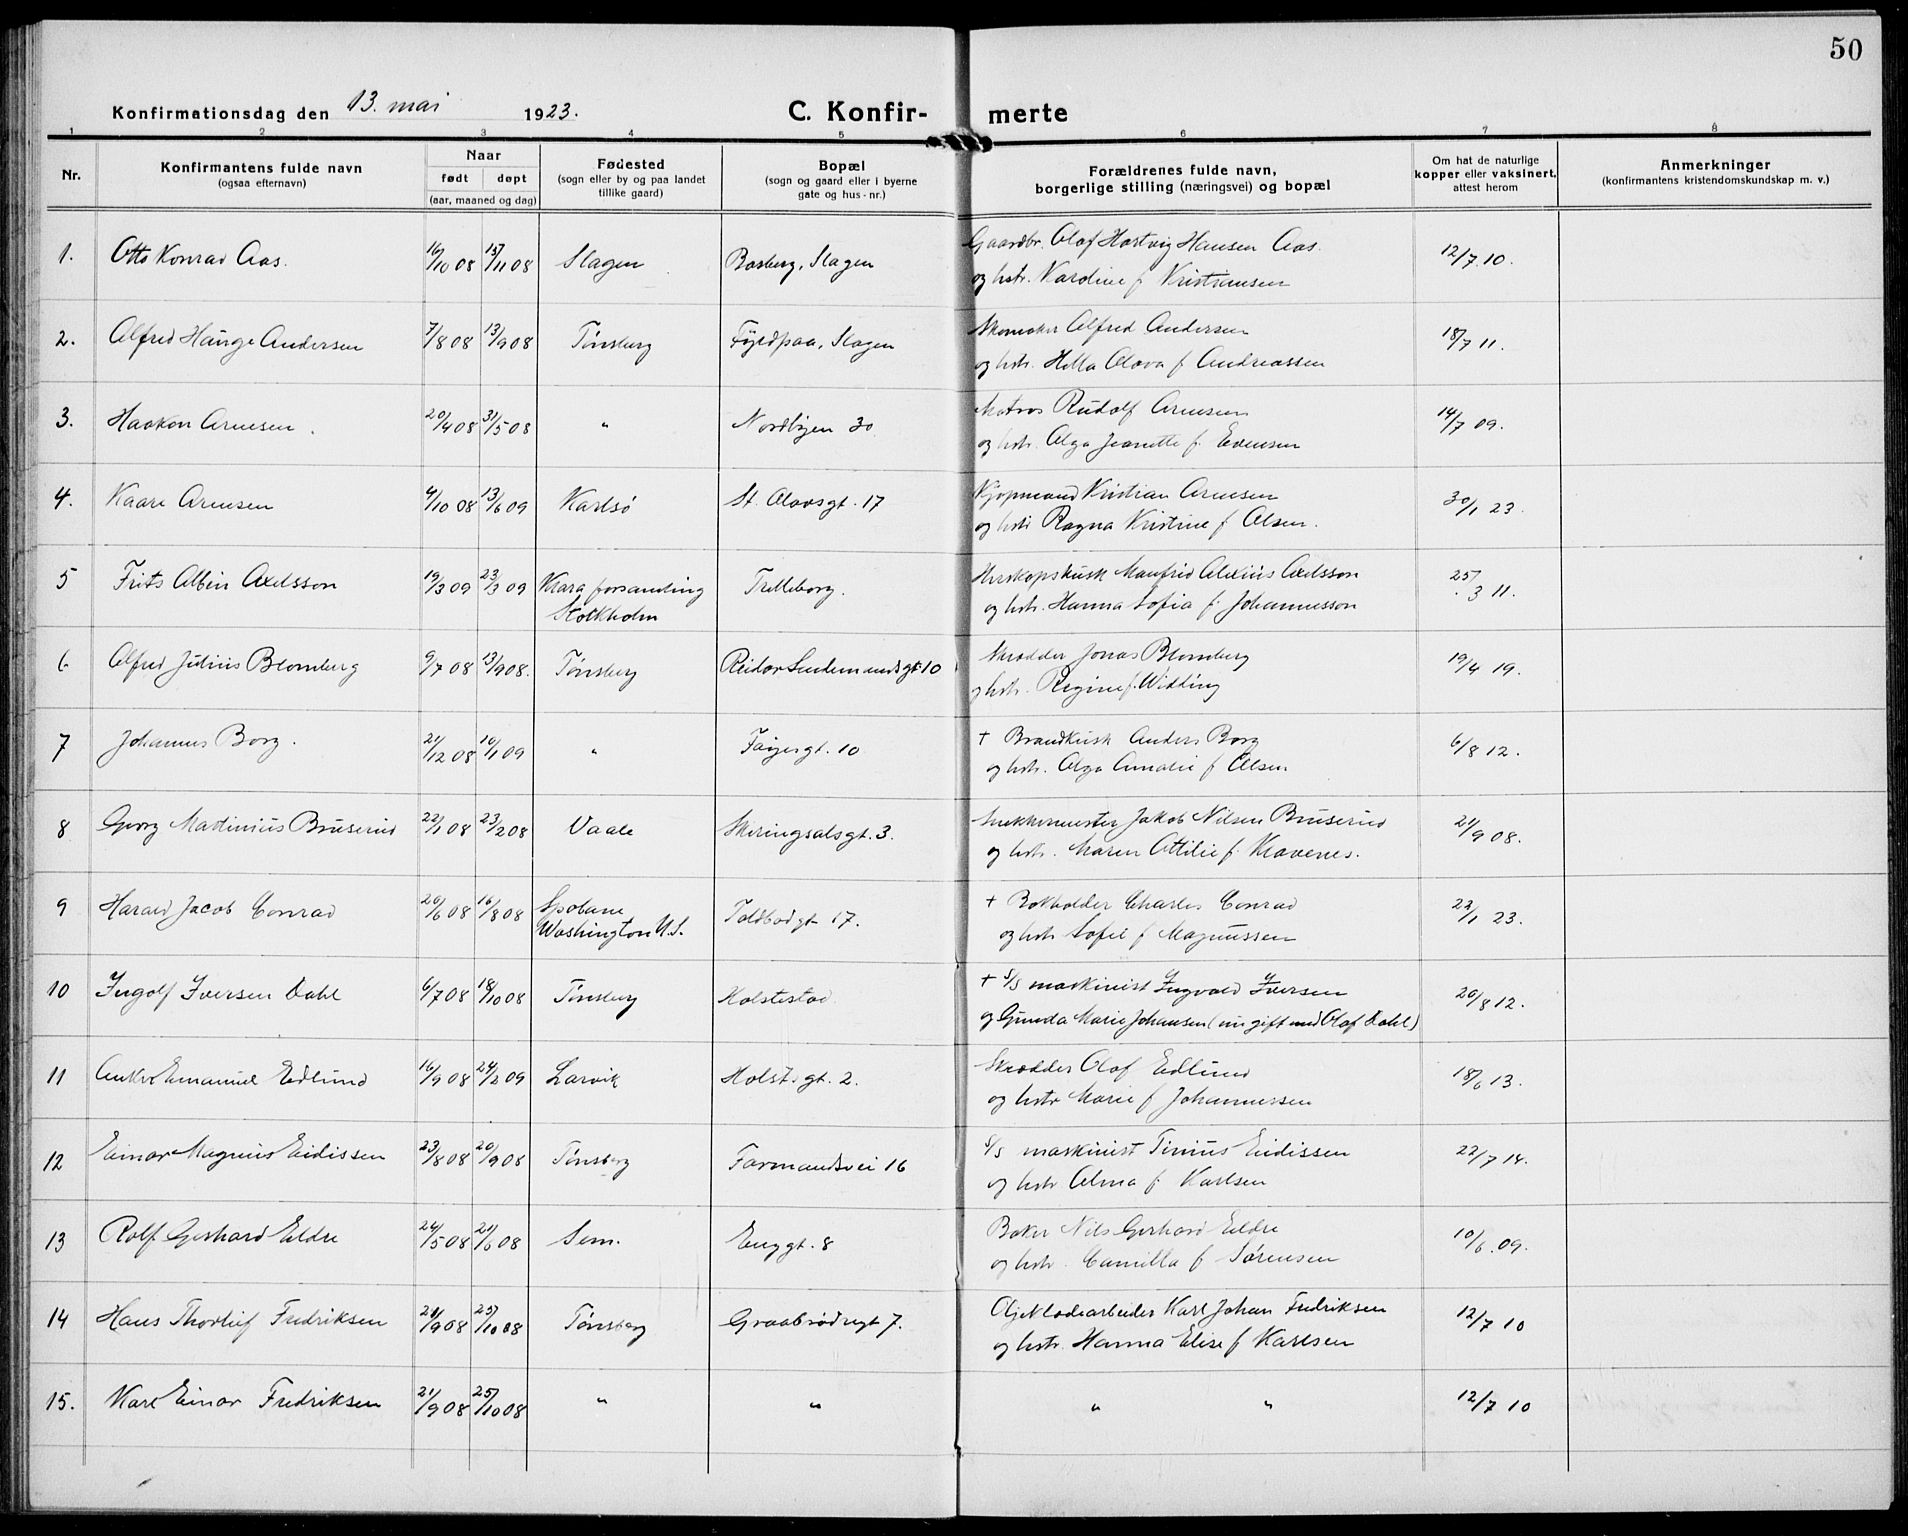 50
Konfirmationsdag den 13. mai 1923. C. Konfir- merte
1 2 3 4 5 6 7 8
Nr. Konfirmantens fulde navn (ogsaa efternavn) Naar født døpt (aar, maaned og dag) Fødested (sogn eller by og paa landet tillike gaard) Bopæl (sogn og gaard eller i byerne gate og hus-nr.) Forældrenes fulde navn, borgerlige stilling (næringsvei) og bopæl Om hat de naturlige kopper eller vaksinert, attest herom Anmerkninger (konfirmantens kristendomskundskap m. v.)
1. Otto Konrad Aas. 16/10 08 15/11 08 Slagen Basberg, Slagen Gaardbr. Olaf Hartvig Hansen Aas. 12/7.10.
og hstr. Nardine f Kristiansen
2. Alfred Hauge Andersen 7/8 08 13/9 08 Tønsberg Fyrdpaa, Slagen Skomaker Alfred Andersen 18/7 11.
og hstr. Hilla Olava f Andreassen
3. Haakon Arnesen. 20/4 08 31/5 08 " Nordbyen 30. Matros Rudolf Arnesen 14/7 09.
og hstr. Olga Jeanette f. Evensen
4. Kaare Arnesen 4/10 08 13/6 09 Karlsö St. Olavsgt. 17 Kjøpmand Kristian Arnesen 30/1 23.
og hstr Ragna Kristine f Olsen.
5 Frits Albin Axelsson 19/3 09 23/3 09 Klara forsamling Trelleborg. Herskapskusk Manfrid Alexius Axelsson 25/3 11.
Stokkholm og hstr. Hanna Sofia f. Johannesson
6 Alfred Julius Blomberg 9/7 08 13/9 08. Tønsberg Reidar Sendemandsgt. 10 Skrædder Jonas Blomberg 19/4 19.
og hstr. Regine f. Widding
7 Johannes Borg. 21/12 08 10/1 09 " Föyesgt. 10 + Brandkusk Anders Borg 6/8 12.
og hstr. Olga Amalie f Olsen
8 Georg Martinius Bruserud 22/1 08 23/2 08 Vaale Skiringsalsgt. 3. Snekkermester Jakob Nilsen Bruserud 21/9 08.
og hstr. Maren Ottilie f. Klavenes.
9 Harald Jacob Conrad 20/6 08 16/8 08 Spokane Toldbodgt 17. + Bokholder Charles Conrad 22/1 23.
Washington U.S. og hstr Sofie f Magnussen
10 Ingolf Iversen Dahl 6/7 08 18/10 08 Tønsberg Holstestad + S/S maskinist Ingvald Iversen 20/8 12.
og Gunda Marie Johansen (nu gift med Olaf Dahl)
11 Anker Emanuel Edlund 16/9 08 24/2 09 Larvik Holstsgt. 2. Skrædder Olaf Edlund 18/6 13.
og hstr Marie f Johannessen
12 Einar Magnus Eidissen 23/8 08 20/9 08 Tønsberg Farmandsvei 16 S/S maskinist Tinius Eidissen 22/7 14.
og hstr Alma f. Karlsen
13 Rolf Gerhard Eldre 24/5 08 21/6 08 Sem. Enggt. 8 Baker Nils Gerhard Eldre 10/6.09.
og hstr. Camilla f Sørensen
14 Hans Thorleif Fredriksen 21/9 08 25/10 08 Tønsberg Graabrødregt 7. Oljeklædearbeider Karl Johan Fredriksen 12/7 10
og hstr. Hanna Elise f Karlsen
15. Karl Einar Fredriksen 21/9 08 25/10 08 " " " " 12/7 10